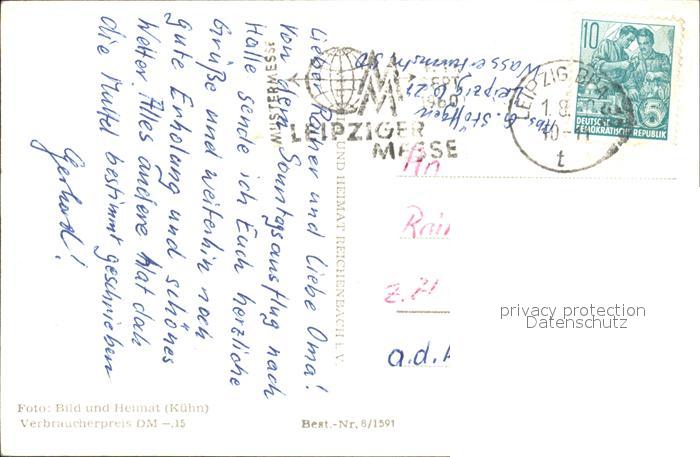 Lieber Rainer und Liebe Oma!
Von dem Sonntagsausflug nach
Halle sende ich Euch herzliche
Grüße und weiterhin noch
gute Erholung und schönes
Wetter. Alles andere Hat doch
die Mutti bestimmt geschrieben
Gerhard!
Abs. G. Stöffgen
Leipzig O 27
MUSTERMESSE
SEPT
1960
M M
LEIPZIGER
MESSE
LEIPZIG BPA
1.8.
10-11
t
10
5
DEUTSCHE
DEMOKRATISCHE REPUBLIK
An
Rain
z. Zt
a.d.
UND HEIMAT REICHENBACH i. V.
privacy protection
Datenschutz
Foto: Bild und Heimat (Kühn)
Verbraucherpreis DM -.15
Best.-Nr. 8/1591